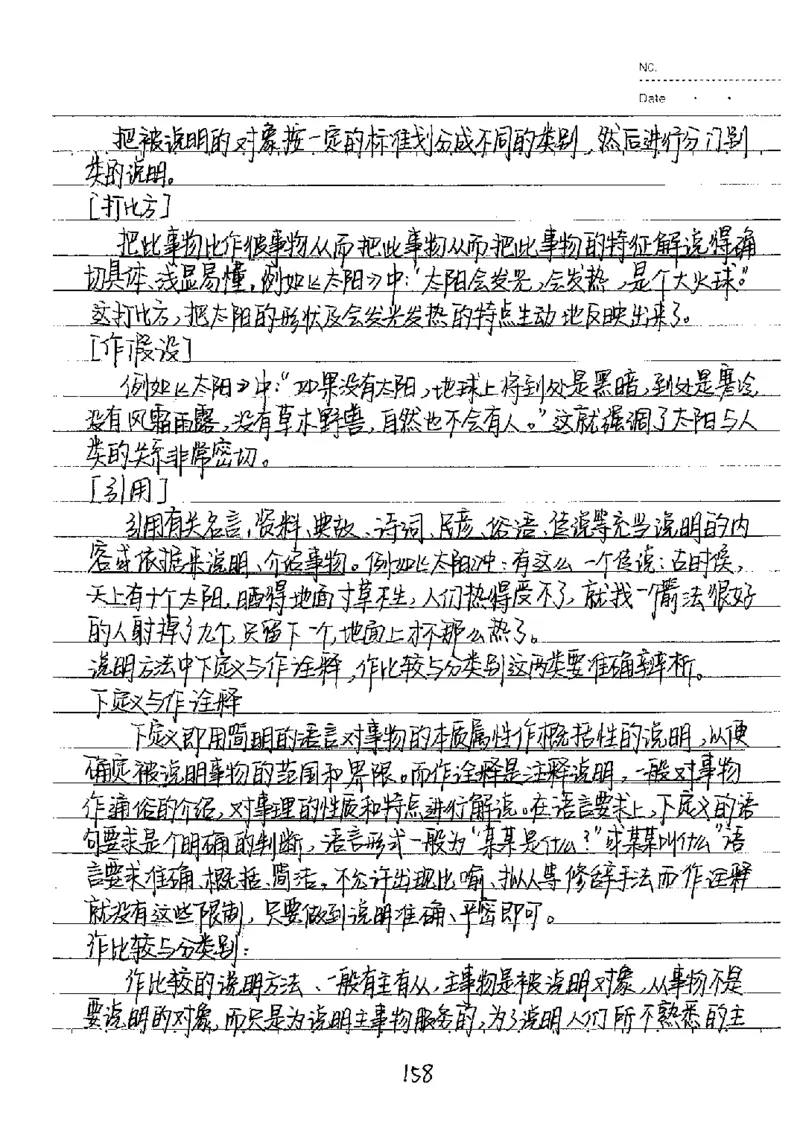 NO.
Date
把被说明的对象按一定的标准划分成不同的类别，然后进行分门别
类的说明。
[打比方]
把此事物比作彼事物从而把此事物从而把此事物的特征解说得确
切具体、浅显易懂。例如《太阳》中：“太阳会发光，会发热，是个大火球。”
这打比方，把太阳的形状及会发光发热的特点生动地反映出来了。
[作假设]
例如《太阳》中：“如果没有太阳，地球上将到处是黑暗，到处是寒冷，
没有风霜雨露，没有草木野兽，自然也不会有人。”这就强调了太阳与人
类的关系非常密切。
[引用]
引用有关名言、资料、典故、诗词、民彦、俗语、传说等充当说明的内
容或依据来说明、介绍事物。例如《太阳》中：有这么一个传说：古时候，
天上有十个太阳，晒得地面寸草不生，人们热得受不了，就找一个箭法很好
的人射掉了九个，只留下一个，地面上才不那么热了。
说明方法中下定义与作诠释，作比较与分类别这两类要准确辨析。
下定义与作诠释
下定义即用简明的语言对事物的本质属性作概括性的说明，以便
确定被说明事物的范围和界限。而作诠释是注释说明，一般对事物
作通俗的介绍，对事理的性质和特点进行解说。在语言要求上，下定义的语
句要求是个明确的判断，语言形式一般为“某某是什么？”或某某叫什么”语
言要求准确、概括、简洁。不允许出现比喻、拟人等修辞手法而作诠释
就没有这些限制，只要做到说明准确、平密即可。
作比较与分类别：
作比较的说明方法、一般有主有从，主事物是被说明对象，从事物不是
要说明的对象，而只是为说明主事物服务的，为了说明人们所不熟悉的主
158